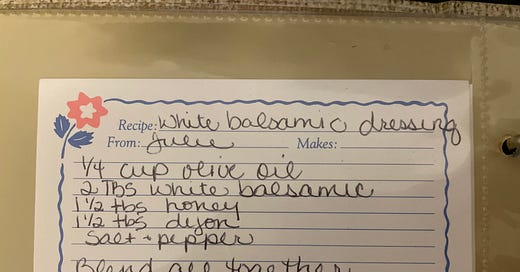 Recipe: White balsamic dressing
From: Julie Makes:
1/4 cup olive oil
2 Tbs white balsamic
1 1/2 tbs honey
1 1/2 tbs dijon
Salt + pepper
Blend all together